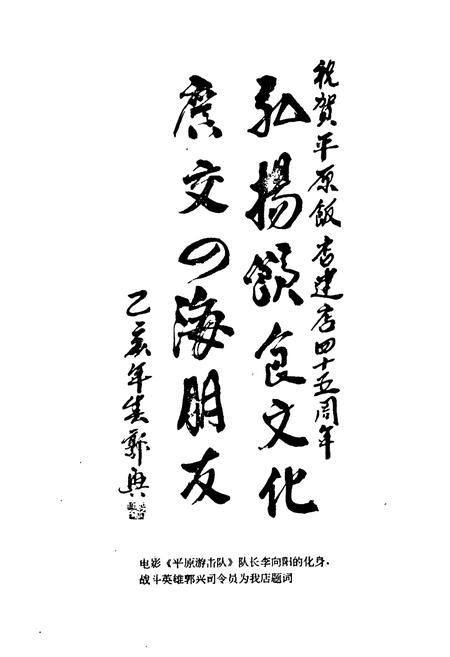 祝賀平原飯店建店四十五周年
弘揚飲食文化
廣交四海朋友
乙亥年 郭興
电影《平原游击队》队长李向阳的化身，
战斗英雄郭兴司令员为我店题词